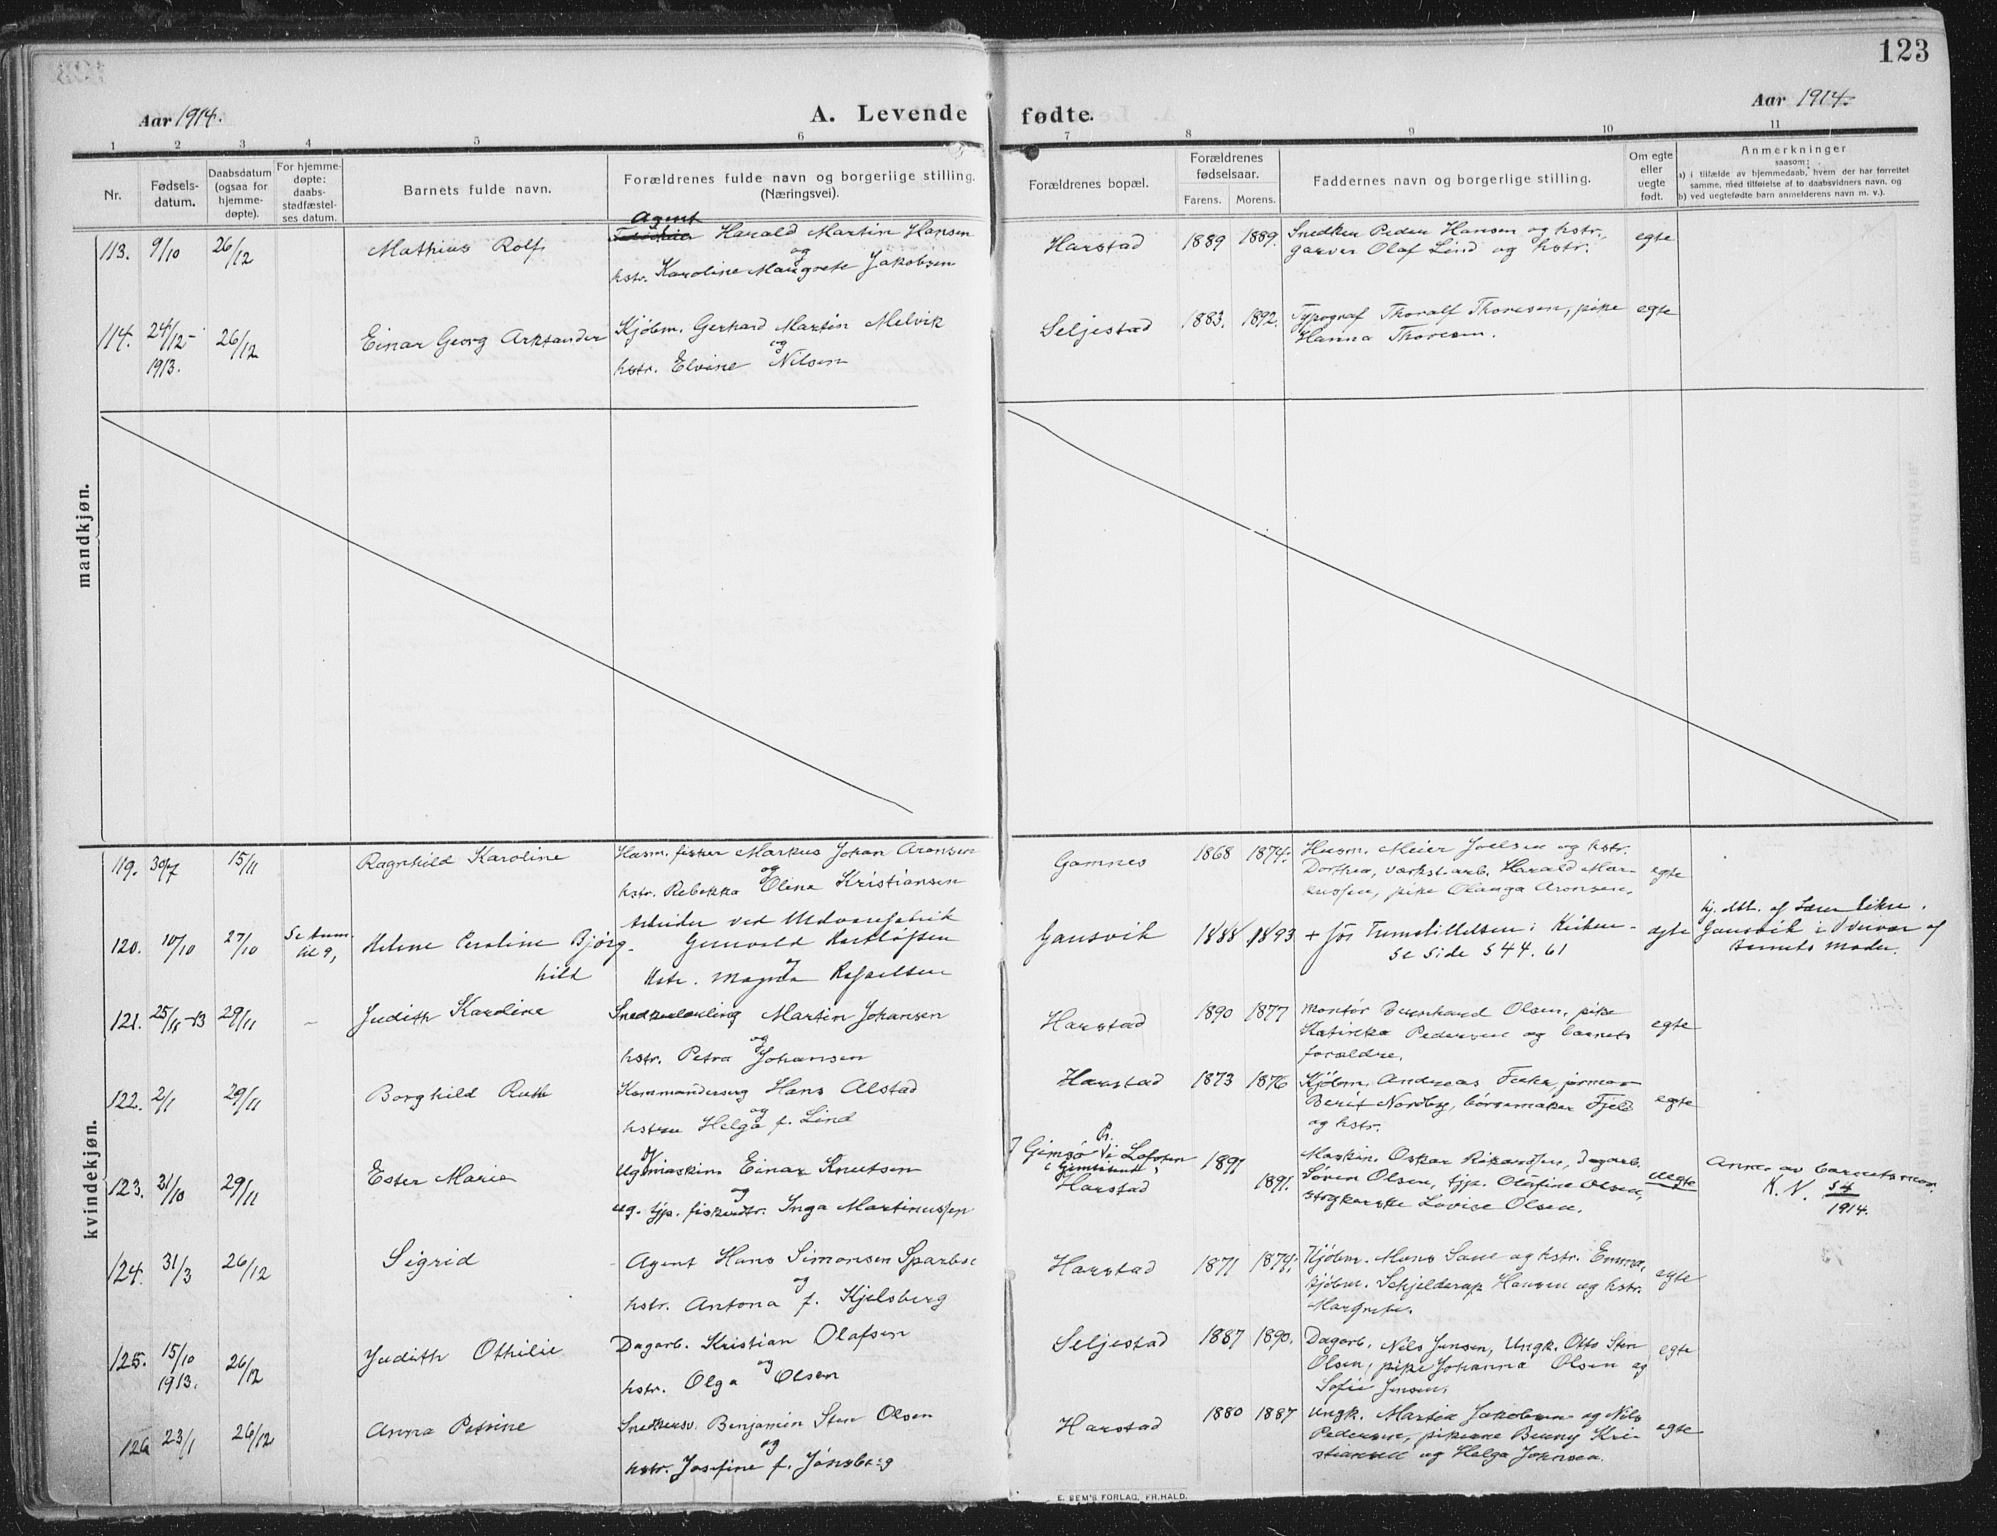 123
Aar 1914.
A. Levende fødte.
Aar 1914.
1 2 3 4 5 6 7 8 9 10 11
Nr.
Fødsels-
datum.
Daabsdatum
(ogsaa for
hjemme-
døpte).
For hjemme-
døpte:
daabs-
stadfæstel-
ses datum.
Barnets fulde navn.
Forældrenes fulde navn og borgerlige stilling.
(Næringsvei).
Forældrenes bopæl.
Forældrenes
fødselsaar.
Farens. Morens.
Faddernes navn og borgerlige stilling.
Om egte
eller
uegte
født.
Anmerkninger
saasom:
a) i tilfælde av hjemmedaab, hvem der har forrettet
samme, med tilføielse af to daabsvidners navn, og
b) ved uegtefødte barn anmelderens navn m. v.).
mandkjøn.
113. 9/10 26/12 Mathius Rolf
Agent
Harald Martin Hansen
og
hstr. Karoline Margrete Jakobsen
Harstad 1889 1889.
Snedker Peder Hansen og hstr.,
garver Olaf Lind og hstr.
egte
114. 24/12-
1913.
26/12 Einar Georg Aleksander
Kjøbm. Gerhard Martin Melvik
og
hstr. Elvine Nilsen
Seljestad 1883. 1892.
Typograf Thoralf Thoresen, pike
Hanna Thoresen.
egte
kvindekjøn.
119. 30/7 15/11 Ragnhild Karoline
Husm. fisker Markus Johan Aronsen
og
hstr. Rebekka Oline Kristiansen
Gamnes 1868 1874.
Husm. Meier Joelsen og hstr.
Dorthea, verkst.arb. Harald Mar-
kussen, pike Olanga Aronsen.
egte
120. 10/10 27/10 Se
til 9,
Helene Peroline Bjørg-
hild
Arbeider ved Uldvarefabrik
Hstr. Magna
Gansvik 1888 1893
+ før i Kirken
se side 544. 61
egte
hj. dbt. af
Gansvik i
barnets moder.
121. 25/11-13 29/11 - Judith Karoline
Snedkerlærling Martin Johansen
og
hstr. Petra Johansen
Harstad 1890 1877
Montør Bernhard Olsen, pike
Pedersen og barnets
forældre.
egte
122. 2/1 29/11 Borghild Ruth
Kommanderserg Hans Alstad
og
hstru Helga f. Lind
Harstad 1873 1876
Kjøbm. Andreas
Berit Nordby, børsemaker Fjeld
og hstr.
egte
123. 31/10 29/11 Ester Marie
ug. maskin. Einar Knutsen
og
ug. tjp. fiskerdtr. Inga Martinussen
Gimsø i Lofoten
Harstad
1891
1891.
Maskin. Oskar Rikardsen, dagarb.
Søren Olsen, tjp. Olafine Olsen,
strykerske Lovise Olsen.
uegte
Anm. av barnets mor.
K. N. 54
1914.
124. 31/3 26/12 Sigrid
Agent Hans Simonsen Sparboe
og
hstr. Antona f. Kjelsberg
Harstad 1871 1874.
Kjøbm. Mons Saue og hstr. Emma,
kjøbm. Schjelderup Hansen og hstr.
Margrete.
egte
125. 15/10
1913.
26/12 Judith Othilie
Dagarb. Kristian Olafsen
og
hstr. Olga Olsen
Seljestad 1887 1890.
Dagarb. Nils Jensen, Ungk. Otto Sten
Olsen, pike Johanna Olsen og
Sofie Jensen.
egte
126 23/1 26/12 Anna Petrine
Snedkersv. Benjamin Sten Olsen
og
hstr. Josefine f. Jønsberg
Harstad 1880 1887
Ungk. Martin Jakobsen og Nils
Pedersen, pikerne Benny Kri-
stiansen og Helga Johnsen.
egte
E. SEM'S FORLAG, FR.HALD.